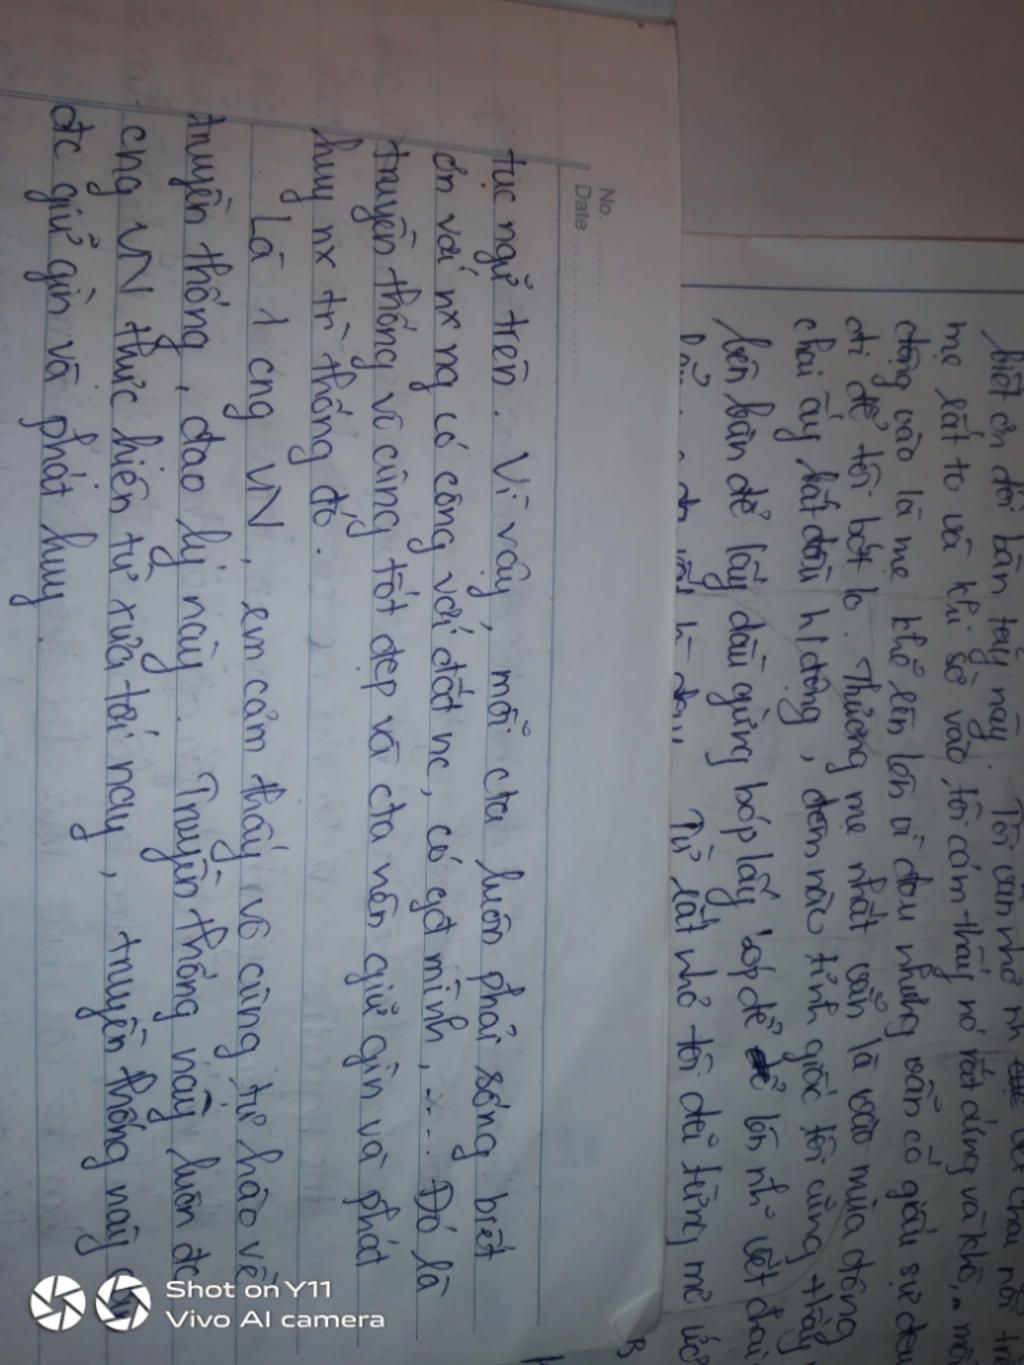 No. ........
Date ..................
tục ngữ trên. Vì vậy, mỗi cta luôn phải sống biết
ơn với nx ng có công với đất nc, có gđ mình, ... Đó là
truyền thống vô cùng tốt đẹp và cta nên giữ gìn và phát
huy nx tr thống đó.
Là 1 cng VN, em cảm thấy vô cùng tự hào về
truyền thống, đạo lý này. Truyền thống này luôn đc
cng VN thực hiện từ xưa tới nay, truyền thống này
đc giữ gìn và phát huy.
biết ơn đôi bàn tay này. Tôi vẫn nhớ chai nổi
mẹ rất to và khi sờ vào, tôi cảm thấy nó rất cứng và khô,
động vào là mẹ khẽ lên vì đau nhưng vẫn cố giấu sự đau
đi để tôi bớt lo. Thương mẹ nhất vẫn là vào mùa đông
chai ấy bắt đầu hđộng, đêm nào tỉnh giấc tôi cũng thấy
bên bàn để lấy dầu gừng bóp lấy bóp để
Từ rất nhỏ tôi đã từng mơ ước
Shot on Y11
Vivo AI camera